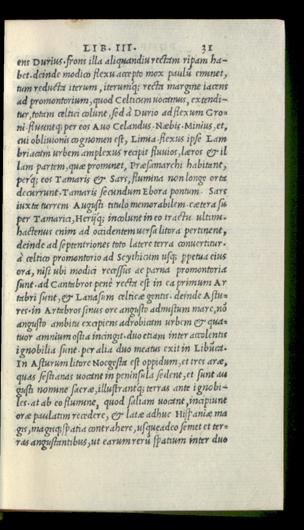 LIB. III. 31
ens Durius. frons illa aliquandiu rectam ripam ha-
bet. deinde modico flexu accepto mox paulū eminet,
tum reducta iterum, iterumq; recta margine iacens
ad promontorium, quod Celticum uocamus, extendi-
tur, totam celtici colunt, sed à Durio ad flexum Gro-
ni. fluuntq; per eos Auo Celandus. Næbis. Minius, et,
cui obliuionis cognomen est, Limia. flexus ipse Lam
briacam urbem amplexus recipit fluuios, læros & il
lam. partem, quæ prominet, Præsamarchi habitant,
perq; eos Tamaris & Sars, flumina non longe orta
decurrunt. Tamaris secundum Ebora portum. Sars
iuxta turrem Augusti titulo memorabilem. cætera su
per Tamarici, Nerijq; incolunt in eo tractu ultimi.
hactenus enim ad occidentem uersa litora pertinent,
deinde ad septentriones toto latere terra conuertitur.
à celtico promontorio ad Scythicum usq; perpetua eius
ora, nisi ubi modici recessus ac parua promontoria
sunt. ad Cantabros penè recta est. in ea primum Ar
tabri sunt, & Ianasum celticæ gentis. deinde Astu-
res. in Artabris sinus ore angusto admissum mare, nō
angusto ambitu excipiens adrobicam urbem & quæ-
uor amnium ostia incingit. duo etiam inter accolentis
ignobilia sunt. per alia duo meatus exit in Libūca.
In Asturum litore Noegesta est oppidum, et tres aræ,
quas sestianas uocant in peninsula sedent, et sunt au
gusti nomine sacræ, illustrantq; terras ante ignobi-
les. at ab eo flumine, quod saliam uocant, incipiunt
oræ paulatim recedere, & latæ adhuc Hispaniæ ma
gis, magisq; spatia contrahere, usqueadeo semet et ter-
ras angustantibus, ut earum rerū spatium inter duo